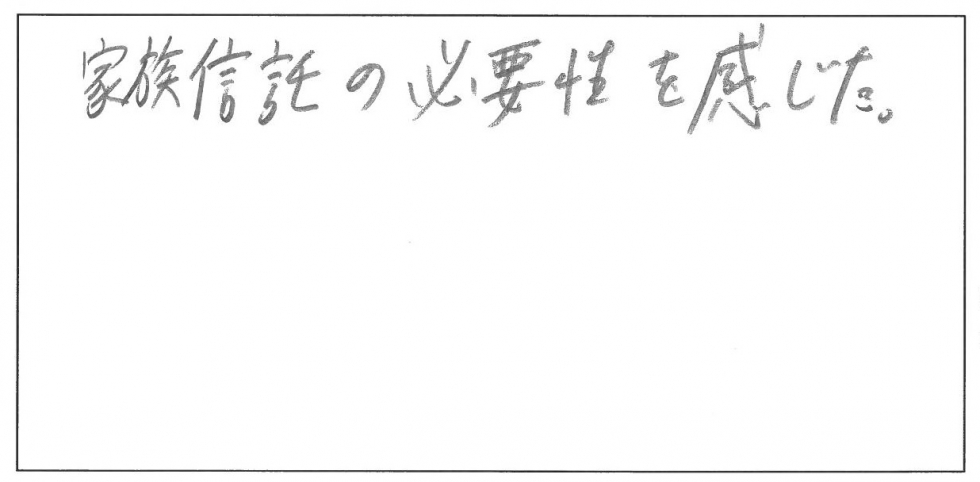 家族信託の必要性を感じた。